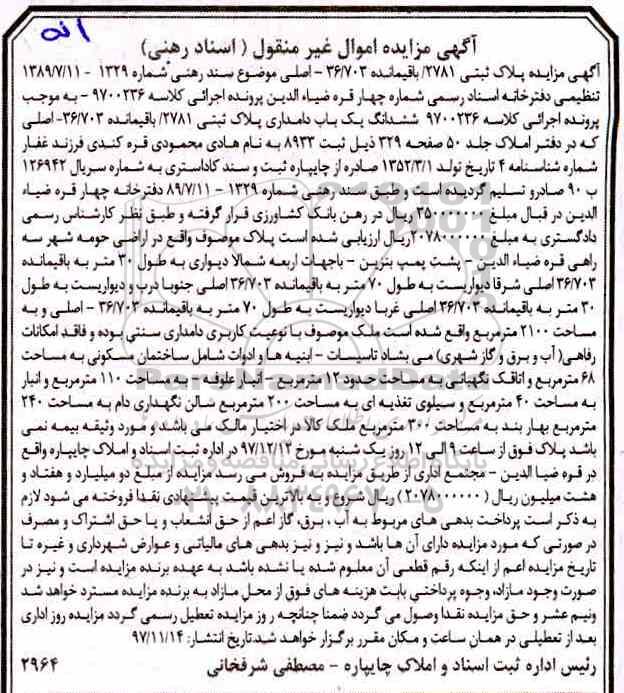 انه
آگهی مزایده اموال غیر منقول ( اسناد رهنی)
آگهی مزایده پلاک ثبتی ۲۷۸۱/ باقیمانده ۳۶/۷۰۳ - اصلی موضوع سند رهنی شماره ۱۳۲۹ - ۱۳۸۹/۷/۱۱
تنظیمی دفترخانه اسناد رسمی شماره چهار قره ضیاء الدین پرونده اجرائی کلاسه ۹۷۰۰۲۳۶ - به موجب
پرونده اجرائی کلاسه ۹۷۰۰۲۳۶ ششدانگ یک باب دامداری پلاک ثبتی ۲۷۸۱/ باقیمانده ۳۶/۷۰۳- اصلی
که در دفتر املاک جلد ۵۰ صفحه ۳۲۹ ذیل ثبت ۸۹۳۳ به نام هادی محمودی قره کندی فرزند غفار
شماره شناسنامه ۴ تاریخ تولد ۱۳۵۲/۳/۱ صادره از چایپاره ثبت و سند کاداستری به شماره سریال ۱۲۶۹۴۲
ب ۹۰ صادرو تسلیم گردیده است و طبق سند رهنی شماره ۱۳۲۹ - ۸۹/۷/۱۱ دفترخانه چهار قره ضیاء
الدین در قبال مبلغ ۳۵۰۰۰۰۰۰۰ ریال در رهن بانک کشاورزی قرار گرفته و طبق نظر کارشناس رسمی
دادگستری به مبلغ ۲۰۷۸۰۰۰۰۰۰ ریال ارزیابی شده است پلاک موصوف واقع در اراضی حومه شهر سه
راهی قره ضیاء الدین - پشت پمپ بنزین - باجهات اربعه شمالا دیواری به طول ۳۰ متر به باقیمانده
۳۶/۷۰۳ اصلی شرقا دیواریست به طول ۷۰ متر به باقیمانده ۳۶/۷۰۳ اصلی جنوبا درب و دیواریست به طول
۳۰ متر به باقیمانده ۳۶/۷۰۳ اصلی غربا دیواریست به طول ۷۰ متر به باقیمانده ۳۶/۷۰۳ - اصلی و به
مساحت ۲۱۰۰ مترمربع واقع شده است ملک موصوف با نوعیت کاربری دامداری سنتی بوده و فاقد امکانات
رفاهی( آب و برق و گاز شهری) می بشاد تاسیسات - ابنیه ها و ادوات شامل ساختمان مسکونی به مساحت
۶۸ مترمربع و اتاقک نگهبانی به مساحت حدود ۱۲ مترمربع - انبار علوفه - به مساحت ۱۱۰ مترمربع و انبار
به مساحت ۴۰ مترمربع و سیلوی تغذیه ای به مساحت ۲۰۰ مترمربع سالن نگهداری دام به مساحت ۲۴۰
مترمربع بهار بند به مساحت ۳۰۰ مترمربع ملک کالا در اختیار مالک می باشد و مورد وثیقه بیمه نمی
باشد پلاک فوق از ساعت ۹ الی ۱۲ روز یک شنبه مورخ ۹۷/۱۲/۱۲ در اداره ثبت اسناد و املاک چایپاره واقع
در قره ضیا الدین - مجتمع اداری از طریق مزایده به فروش می رسد مزایده از مبلغ دو میلیارد و هفتاد و
هشت میلیون ریال ( ۲۰۷۸۰۰۰۰۰۰ ) ریال شروع وبه بالاترین قیمت پیشنهادی نقدا فروخته می شود لازم
به ذکر است پرداخت بدهی های مربوط به آب ، برق، گاز اعم از حق انشعاب و یا حق اشتراک و مصرف
در صورتی که مورد مزایده دارای آن ها باشد و نیز و نیز بدهی های مالیاتی و عوارض شهرداری و غیره تا
تاریخ مزایده اعم از اینکه رقم قطعی آن معلوم شده یا نشده باشد به عهده برنده مزایده است و نیز در
صورت وجود مازاد، وجوه پرداختی بابت هزینه های فوق از محل مازاد به برنده مزایده مسترد خواهد شد
ونیم عشر و حق مزایده نقدا وصول می گردد ضمنا چنانچه روز مزایده تعطیل رسمی گردد مزایده روز اداری
بعد از تعطیلی در همان ساعت و مکان مقرر برگزار خواهد شد.تاریخ انتشار: ۹۷/۱۱/۱۴
رئیس اداره ثبت اسناد و املاک چایپاره - مصطفی شرفخانی ۲۹۶۴